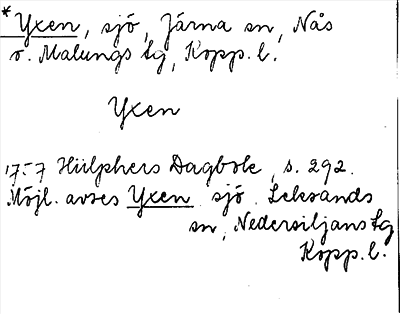 * Yxen, sjö, Järna sn, Nås
o. Malungs tg, Kopp. l.
Yxen
1757 Hülphers Dagbok, s. 292.
Möjl. avses Yxen sjö Leksands
sn, Nedersiljans tg
Kopp. l.